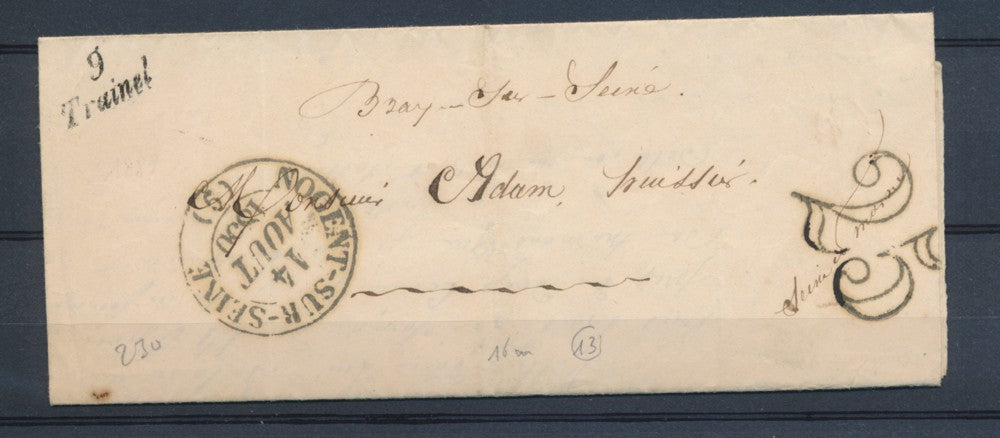 9
Trainel
Bray-Sur-Seine.
Monsieur Adam, huissier.
NOGENT-SUR-SEINE (9)
14
AOUT
1850
25
Seine et marne
230
16 13